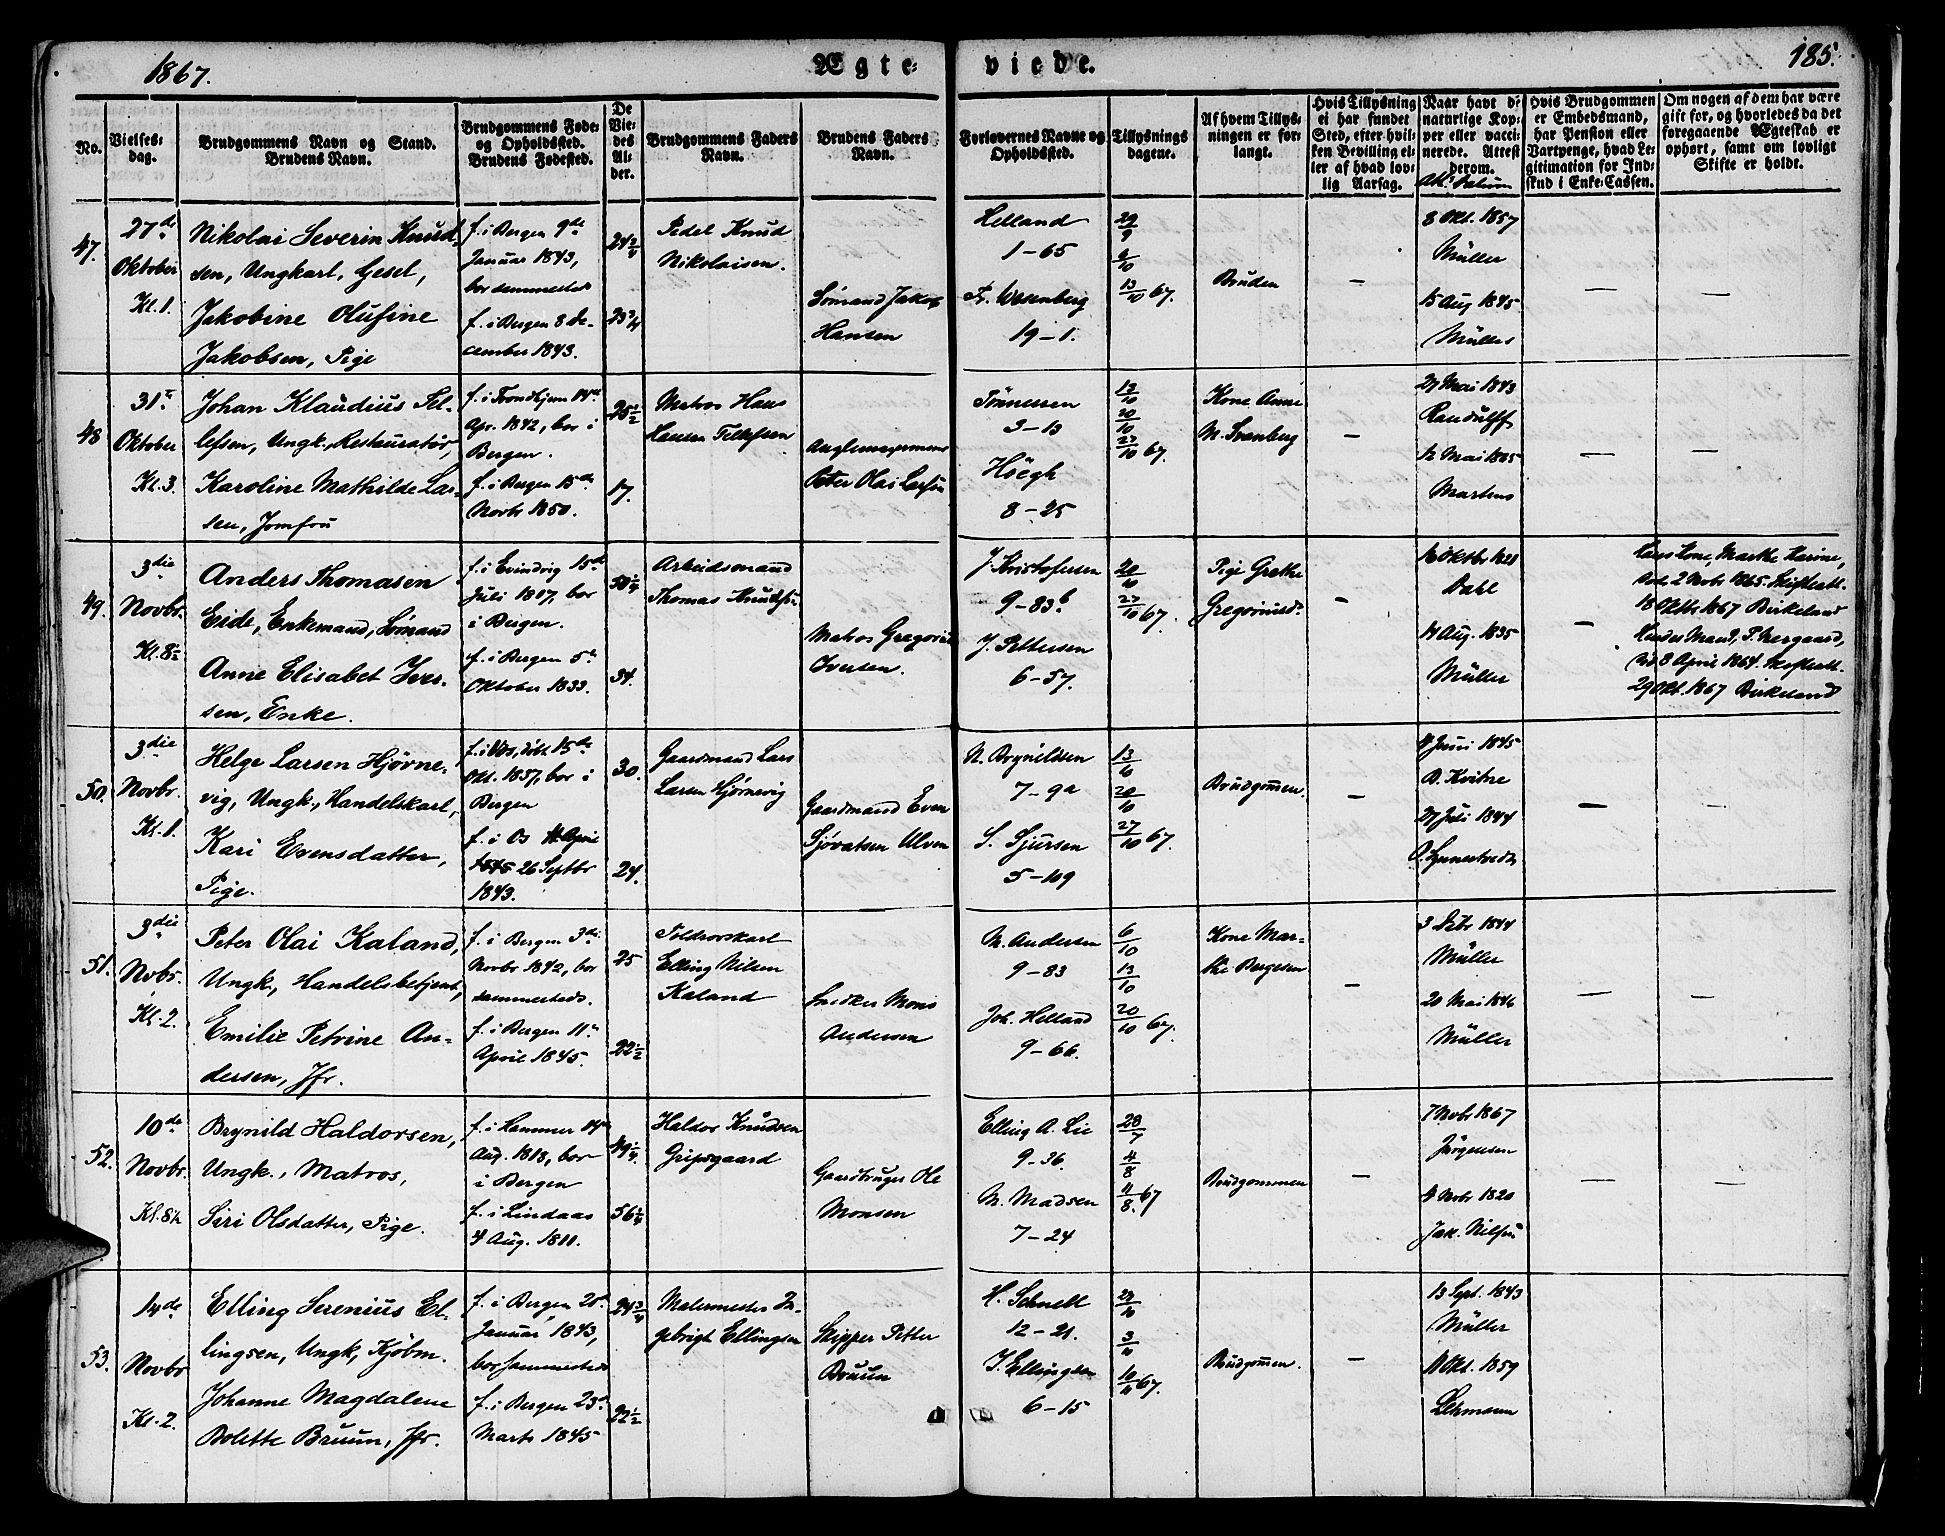 1867.
Ægte-
viede.
185.
No.
Vielses-
dag.
Brudgommens Navn og Stand.
Brudens Navn.
Brudgommens Føde-
og Opholdsted.
Brudens Fødested.
De
Vie-
des
Al-
der.
Brudgommens Faders
Navn.
Brudens Faders
Navn.
Forlovernes Navne og
Opholdsted.
Tillysnings
dagene.
Af hvem Tillys-
ningen er for-
langt.
Hvis Tillysning
ei har fundet
Sted, efter hvil-
ken Bevilling el-
ler af hvad lov-
lig Aarsag.
Naar havt de
naturlige Kop-
per eller vacci-
nerede. Attest
derom.
Att. Datum
Hvis Brudgommen
er Embedsmand,
har Pension eller
Vartpenge, hvad Le-
gitimation for Ind-
skud i Enke-Cassen.
Om nogen af dem har være
gift for, og hvorledes da det
foregaaende Ægteskab er
ophørt, samt om lovligt
Skifte er holdt.
47.
27de
Oktober
Kl. 1.
Nikolai Severin Knud-
sen, Ungkarl, Gesel,
Jakobine Olufine
Jakobsen, Pige
f. i Bergen 9de
Januar 1843,
bor sammesteds
f. i Bergen 8 De-
cember 1843.
24 3/4
23 3/4
Pedel Knud
Nikolaisen.
Sømand Jakob
Hansen
Helland
1-65
Fr. Wesenberg
19-1.
29/9
6/10
13/10 67.
Bruden
—
8 Okt. 1857
Müller
15 Aug 1845
Müller
—
—
48
31te
Oktober
Kl. 3.
Johan Klaudius Tel-
lefsen, Ungk., Restauratør,
Karoline Mathilde Lar-
sen, Jomfru
f. i Trondhjem 14de
Apr. 1842, bor i
Bergen.
f. i Bergen 15de
Novbr 1850.
25 1/2
17.
Matros Hans
Hansen Tellefsen
Peter Olai Larsen
Tønnessen
3-13
Höegh
8-25
13/10
20/10
27/10 67.
Kone Anne
M. Svanberg
—
27 Mai 1843
Randulff
12 Mai 1865
Martens
—
—
49.
3die
Novbr.
Kl. 8 1/2
Anders Thomasen
Eide, Enkemand, Sømand
Anne Elisabet Iver-
sen, Enke.
f. i Evindvig 15de
Juli 1817, bor
i Bergen.
f. i Bergen 5te
Oktober 1833.
50 1/4
34.
Arbeidsmand
Thomas Knudsen
Matros Gregorius
Iversen.
J. Kristofersen
9-83b
J. Pettersen
6-57.
20/10
27/10 67.
Pige Grethe
Gregoriusd.
—
Dahl
14 Aug. 1835
Müller
—
Hans Kone, Marthe Karine,
död 2 Novbr 1865. Skifteatt.
18 Oktbr 1867 Birkeland
Hendes Mand, P. Nergaard,
död 8 April 1864. Skifteatt.
29 Okt. 1867 Birkeland
50.
3die
Novbr.
Kl. 1
Helge Larsen Hjørne-
vig, Ungk., Handelskarl,
Kari Evensdatter,
Pige.
Okt. 1837, bor i
Bergen
f. i Os
26 Septbr
1843.
30.
24.
Gaardmand Lars
Larsen Hjørnevig
Gaardmand Even
Sjovatsen Ulven
N. Brynildsen
7-9a
S. Sjursen
5-109
13/10
20/10
27/10 67.
Brudgommen.
—
4 Juni 1845
B. Kvitne
27 Juli 1844
—
—
51.
3die
Novbr.
Kl. 2.
Peter Olai Kaland,
Ungk., Handelsbetjent,
Emilie Petrine An-
dersen, Jfr.
f. i Bergen 3die
Novbr 1842, bor
sammesteds.
f. i Bergen 11te
April 1845.
25
22 1/2
Toldrorskarl
Elling Nilsen
Kaland
Snedker Mons
Andersen
M. Andersen
9-83
Joh. Helland
9-66.
6/10
13/10
20/10 67.
Kone Mar-
the Bergesen
—
3 Debr 1844
Müller
20 Mai 1846
Müller
—
—
52.
10de
Novbr.
Kl. 8 1/2
Brynild Haldorsen,
Ungk., Matros,
Siri Olsdatter, Pige.
f. i Hammer 14de
Aug. 1818, bor
i Bergen
f. i Lindaas
4 Aug. 1811.
49 1/4
56 1/4
Haldor Knudsen
Gripsgaard
Gaardbruger Ole
Monsen
Elling A. Lie
9-36
M. Madsen
7-24
28/7
4/8
11/8. 67
Brudgommen
—
7 Novbr 1867
Jörgensen
4 Novbr 1820
Jak. Nilsen
—
—
53.
14de
Novbr
Kl. 2.
Elling Serenius El-
lingsen, Ungk, Kjöbm.
Johanne Magdalene
Bolette Bruun, Jfr.
f. i Bergen 20de
Januar 1843,
bor sammesteds
f. i Bergen 23de
Marts 1845
24 3/4
22 1/2
Malermester In-
gebrigt Ellingsen
Skipper Petter
Bruun
H. Schnell
12-21.
I. Ellingsen
6-15
27/10
3/11
10/11 67.
Brudgommen.
—
13 Sept. 1843
Müller
11 Okt. 1859
Lehmann